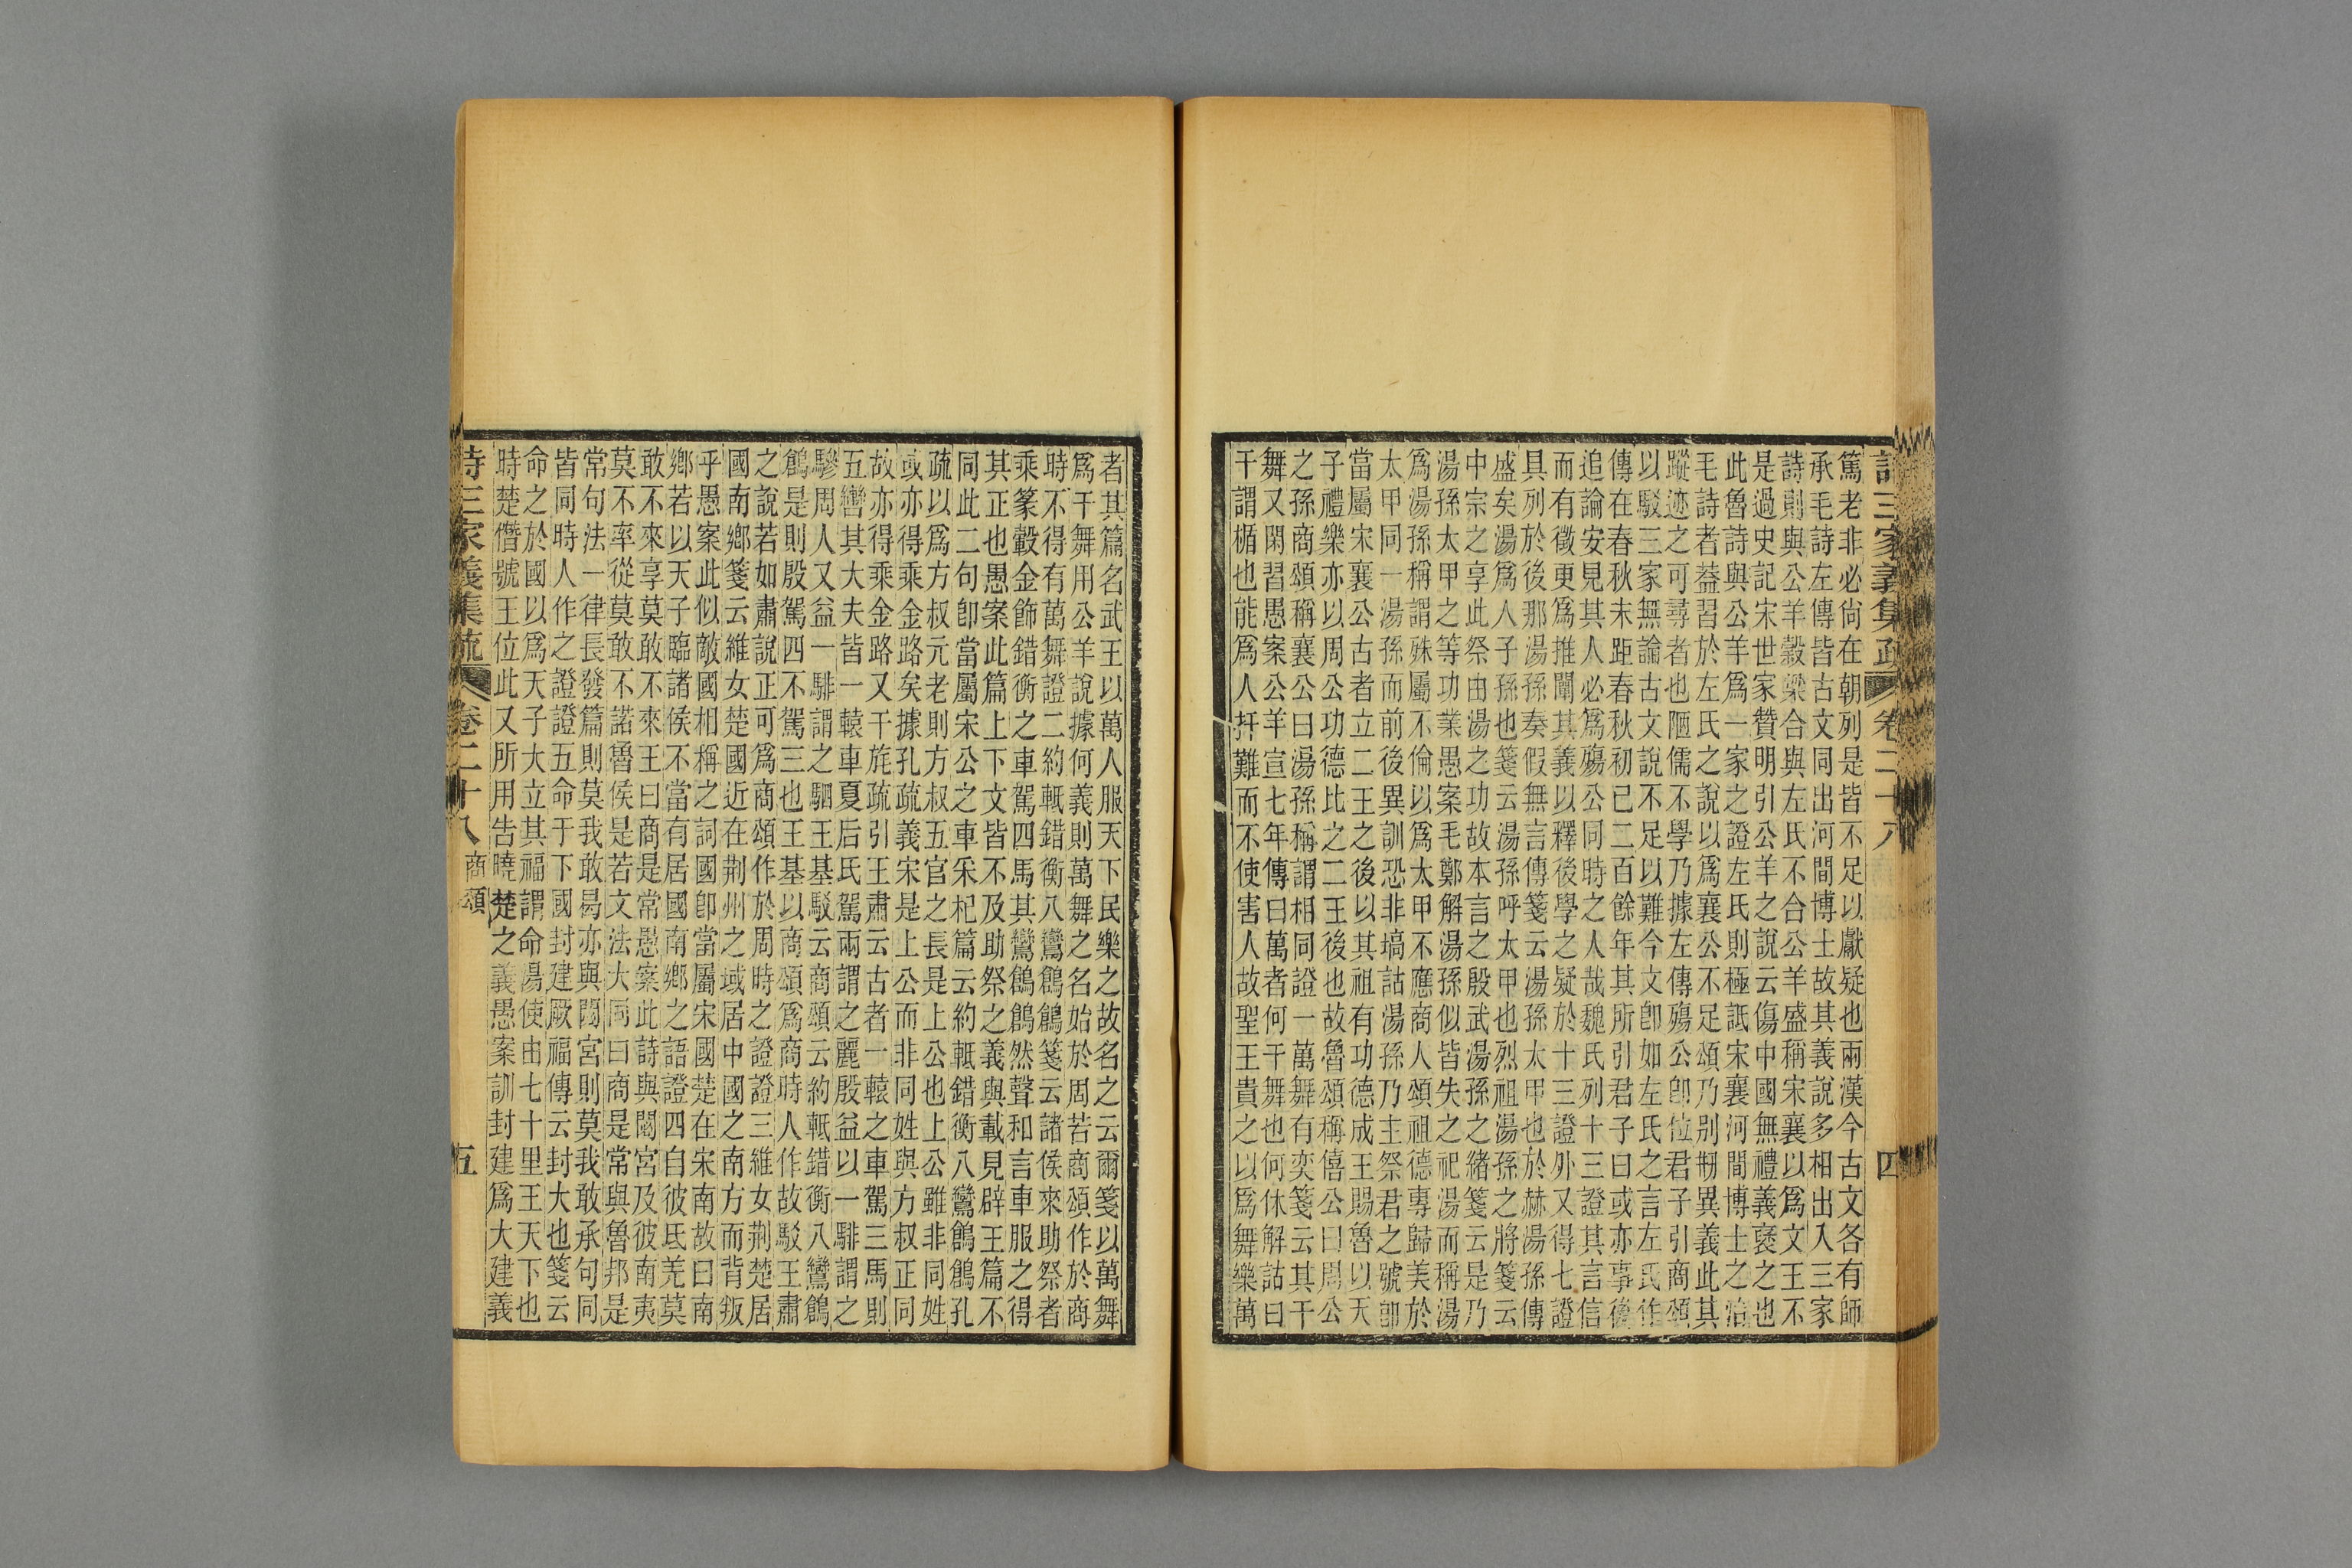 詩三家義集疏 卷二十八 四
篤老非必尚在朝列是皆不足以獻疑也兩漢今古文各有師
承毛詩左傳皆古文同出河間博士故其義說多相出入三家
詩則與公羊穀梁合與左氏不合公羊盛稱宋襄以爲文王不
是過史記宋世家贊明引公羊之說云傷中國無禮義襃之也
此魯詩與公羊爲一家之證左氏則極詆宋襄河間博士之治
毛詩者葢習於左氏之說以爲襄公不足頌乃別剏異義此其
蹤迹之可尋者也陋儒不學乃據左傳殤公卽位君子引商頌
以駁三家無論古文說不足以難今文卽如左氏之言左氏作
傳在春秋末距春秋初已二百餘年其所引君子曰或亦事後
追論安見其人必爲殤公同時之人哉魏氏列十三證其言信
而有徵更爲推闡其義以釋後學之疑於十三證外又得七證
具列於後那湯孫奏假無言傳箋云湯孫太甲也於赫湯孫傳
盛矣湯爲人子孫也箋云湯孫呼太甲也烈祖湯孫之將箋云
中宗之享此祭由湯之功故本言之殷武湯孫之緒箋云是乃
湯孫太甲之等功業愚案毛鄭解湯孫似皆失之祀湯而稱湯
爲湯孫稱謂殊屬不倫以爲太甲不應商人頌祖德專歸美於
太甲同一湯孫而前後異訓恐非塙詁湯孫乃主祭君之號卽
當屬宋襄公古者立二王之後以其祖有功德成王賜魯以天
子禮樂亦以周公功德比之二王後也故魯頌稱僖公曰周公
之孫商頌稱襄公曰湯孫稱謂相同證一萬舞有奕箋云其干
舞又閑習愚案公羊宣七年傳曰萬者何干舞也何休解詁曰
干謂楯也能爲人扞難而不使害人故聖王貴之以爲舞樂萬
者其篇名武王以萬人服天下民樂之故名之云爾箋以萬舞
爲干舞用公羊說據何義則萬舞之名始於周若商頌作於商
時不得有萬舞證二約軧錯衡八鸞鶬鶬箋云諸侯來助祭者
乘篆轂金飾錯衡之車駕四馬其鸞鶬鶬然聲和言車服之得
其正也愚案此篇上下文皆不及助祭之義與載見辟王篇不
同此二句卽當屬宋公之車采杞篇云約軧錯衡八鸞鶬鶬孔
疏以爲方叔元老則方叔五官之長是上公也上公雖非同姓
或亦得乘金路矣據孔疏義宋是上公而非同姓與方叔正同
故亦得乘金路又干旄疏引王肅云古者一轅之車駕三馬則
五轡其大夫皆一轅車夏后氏駕兩謂之麗殷益以一騑謂之
驂周人又益一騑謂之駟王基駁云商頌云約軧錯衡八鸞鶬
鶬是則殷駕四不駕三也王基以商頌爲商時人作故駁王肅
之說若如肅說正可爲商頌作於周時之證證三維女荆楚居
國南鄉箋云維女楚國近在荆州之域居中國之南方而背叛
乎愚案此似敵國相稱之詞國卽當屬宋國楚在宋南故曰南
鄉若以天子臨諸侯不當有居國南鄉之語證四自彼氐羌莫
敢不來享莫敢不來王曰商是常愚案此詩與閟宮及彼南夷
莫不率從莫敢不諾魯侯是若文法大同曰商是常與魯邦是
常句法一律長發篇則莫我敢曷亦與閟宮則莫我敢承句同
皆同時人作之證證五命于下國封建厥福傳云封大也箋云
命之於國以爲天子大立其福謂命湯使由七十里王天下也
時楚僭號王位此又所用告曉楚之義愚案訓封建爲大建義
詩三家義集疏 卷二十八 商頌 五